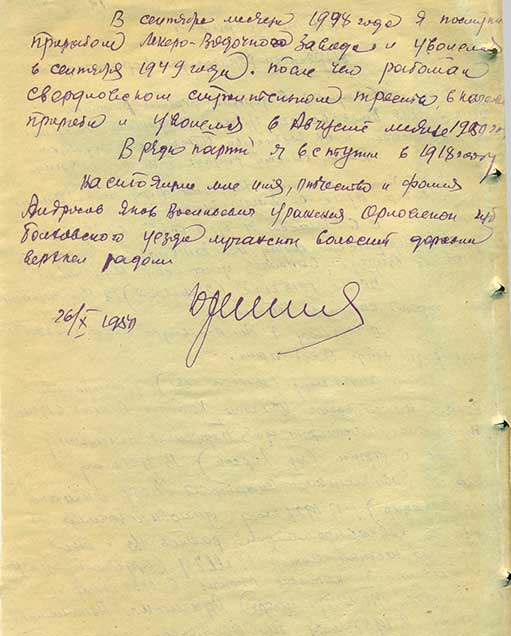 В сентябре месяце 1948 года я поступи
прорабом Ликеро-Водочного Завода и уволился
в сентября 1949 года. после чего работал
свердловском строительном тресте, в качес
прораба и уволился в Августе месяце 1950
В ряды партии я вступил в 1918 году
настоящие мое имя, отчество и фамил
Андросов Яков Васильевич уроженец Орловской губ
Болховского уезда волости деревни
верхней радомки
26/X 1950